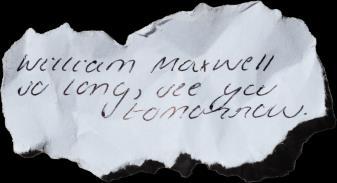 William Maxwell
so long, see you
tomorrow.